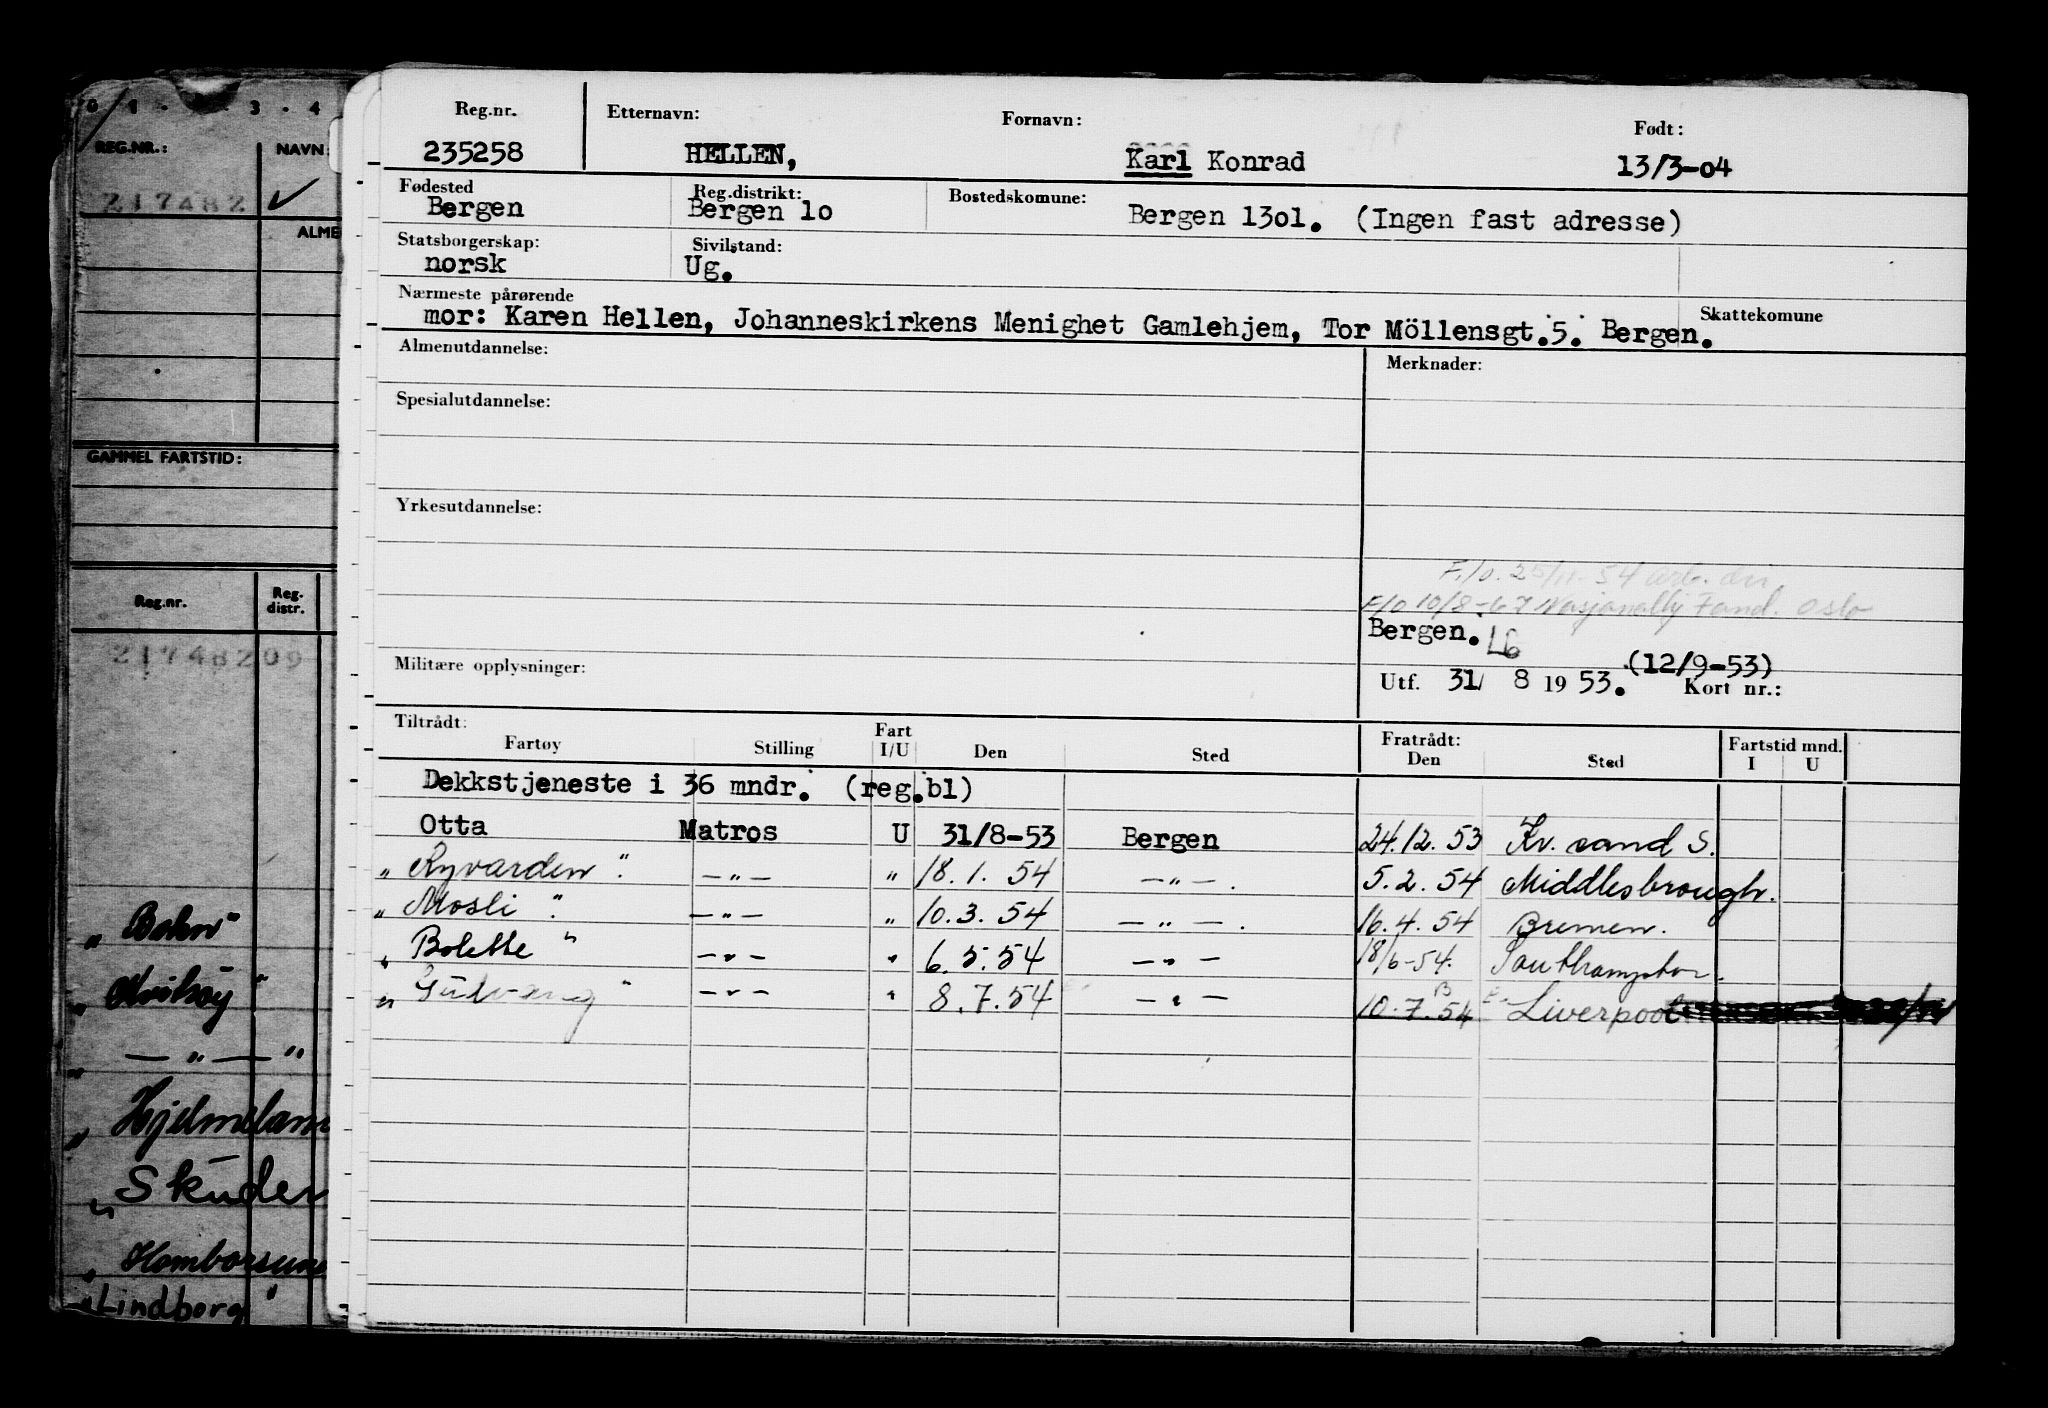 0 1 - - 3 - 4
REG.NR.: NAVN:
217482
ALME
GAMMEL FARTSTID:
Reg.nr. Reg. distr.
21748209
„ Hjelmelan
„ Skuder
„ Homborsun
„ Lindborg "
Reg.nr. Etternavn: Fornavn: Født:
235258 HELLEN, Karl Konrad 13/3-04
Fødested Reg.distrikt: Bostedskomune:
Bergen Bergen 1o Bergen 13o1. (Ingen fast adresse)
Statsborgerskap: Sivilstand:
norsk Ug.
Nærmeste pårørende Skattekomune
mor: Karen Hellen, Johanneskirkens Menighet Gamlehjem, Tor Möllensgt.5. Bergen.
Almenutdannelse: Merknader:
Spesialutdannelse:
Yrkesutdannelse:
F/o. 25/11-54 arb. dir.
F/o 10/8-67 Oslo
Bergen. L6
Militære opplysninger: (12/9-53)
Utf. 31/ 8 1953. Kort nr.:
Tiltrådt: Fratrådt: Fartstid mnd.
Fartøy Stilling Fart I/U Den Sted Den Sted I U
Dekkstjeneste i 36 mndr. (reg.bl)
Otta Matros U 31/8-53 Bergen 24.12.53 Kr. sand S.
„ Ryvarden " —"— " 18.1.54 —"—. 5.2.54 Middlesbrough.
„ Mosli " —"— " 10.3.54 —"—. 16.4.54 Bremen.
„ Bolette " —"— " 6.5.54 —"— 18/6-54. Southampton.
„ —"— " 8.7.54 —"— 10.7.54 Liverpool